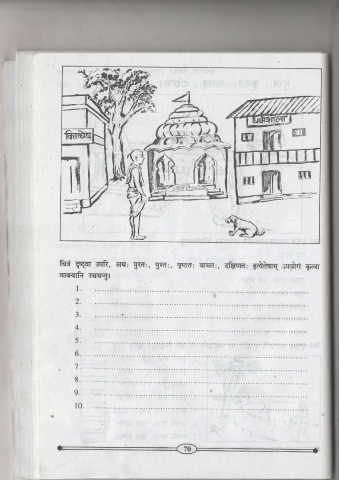 धर्मशाला
चित्रं दृष्ट्वा उपरि, अधः पुरतः, पुरतः, पृष्ठतः वामतः, दक्षिणतः इत्येतेषाम् उपयोगं कृत्वा
वाक्यानि रचयन्तु।
1.
2.
3.
4.
5.
6.
7.
8.
9.
10.
70